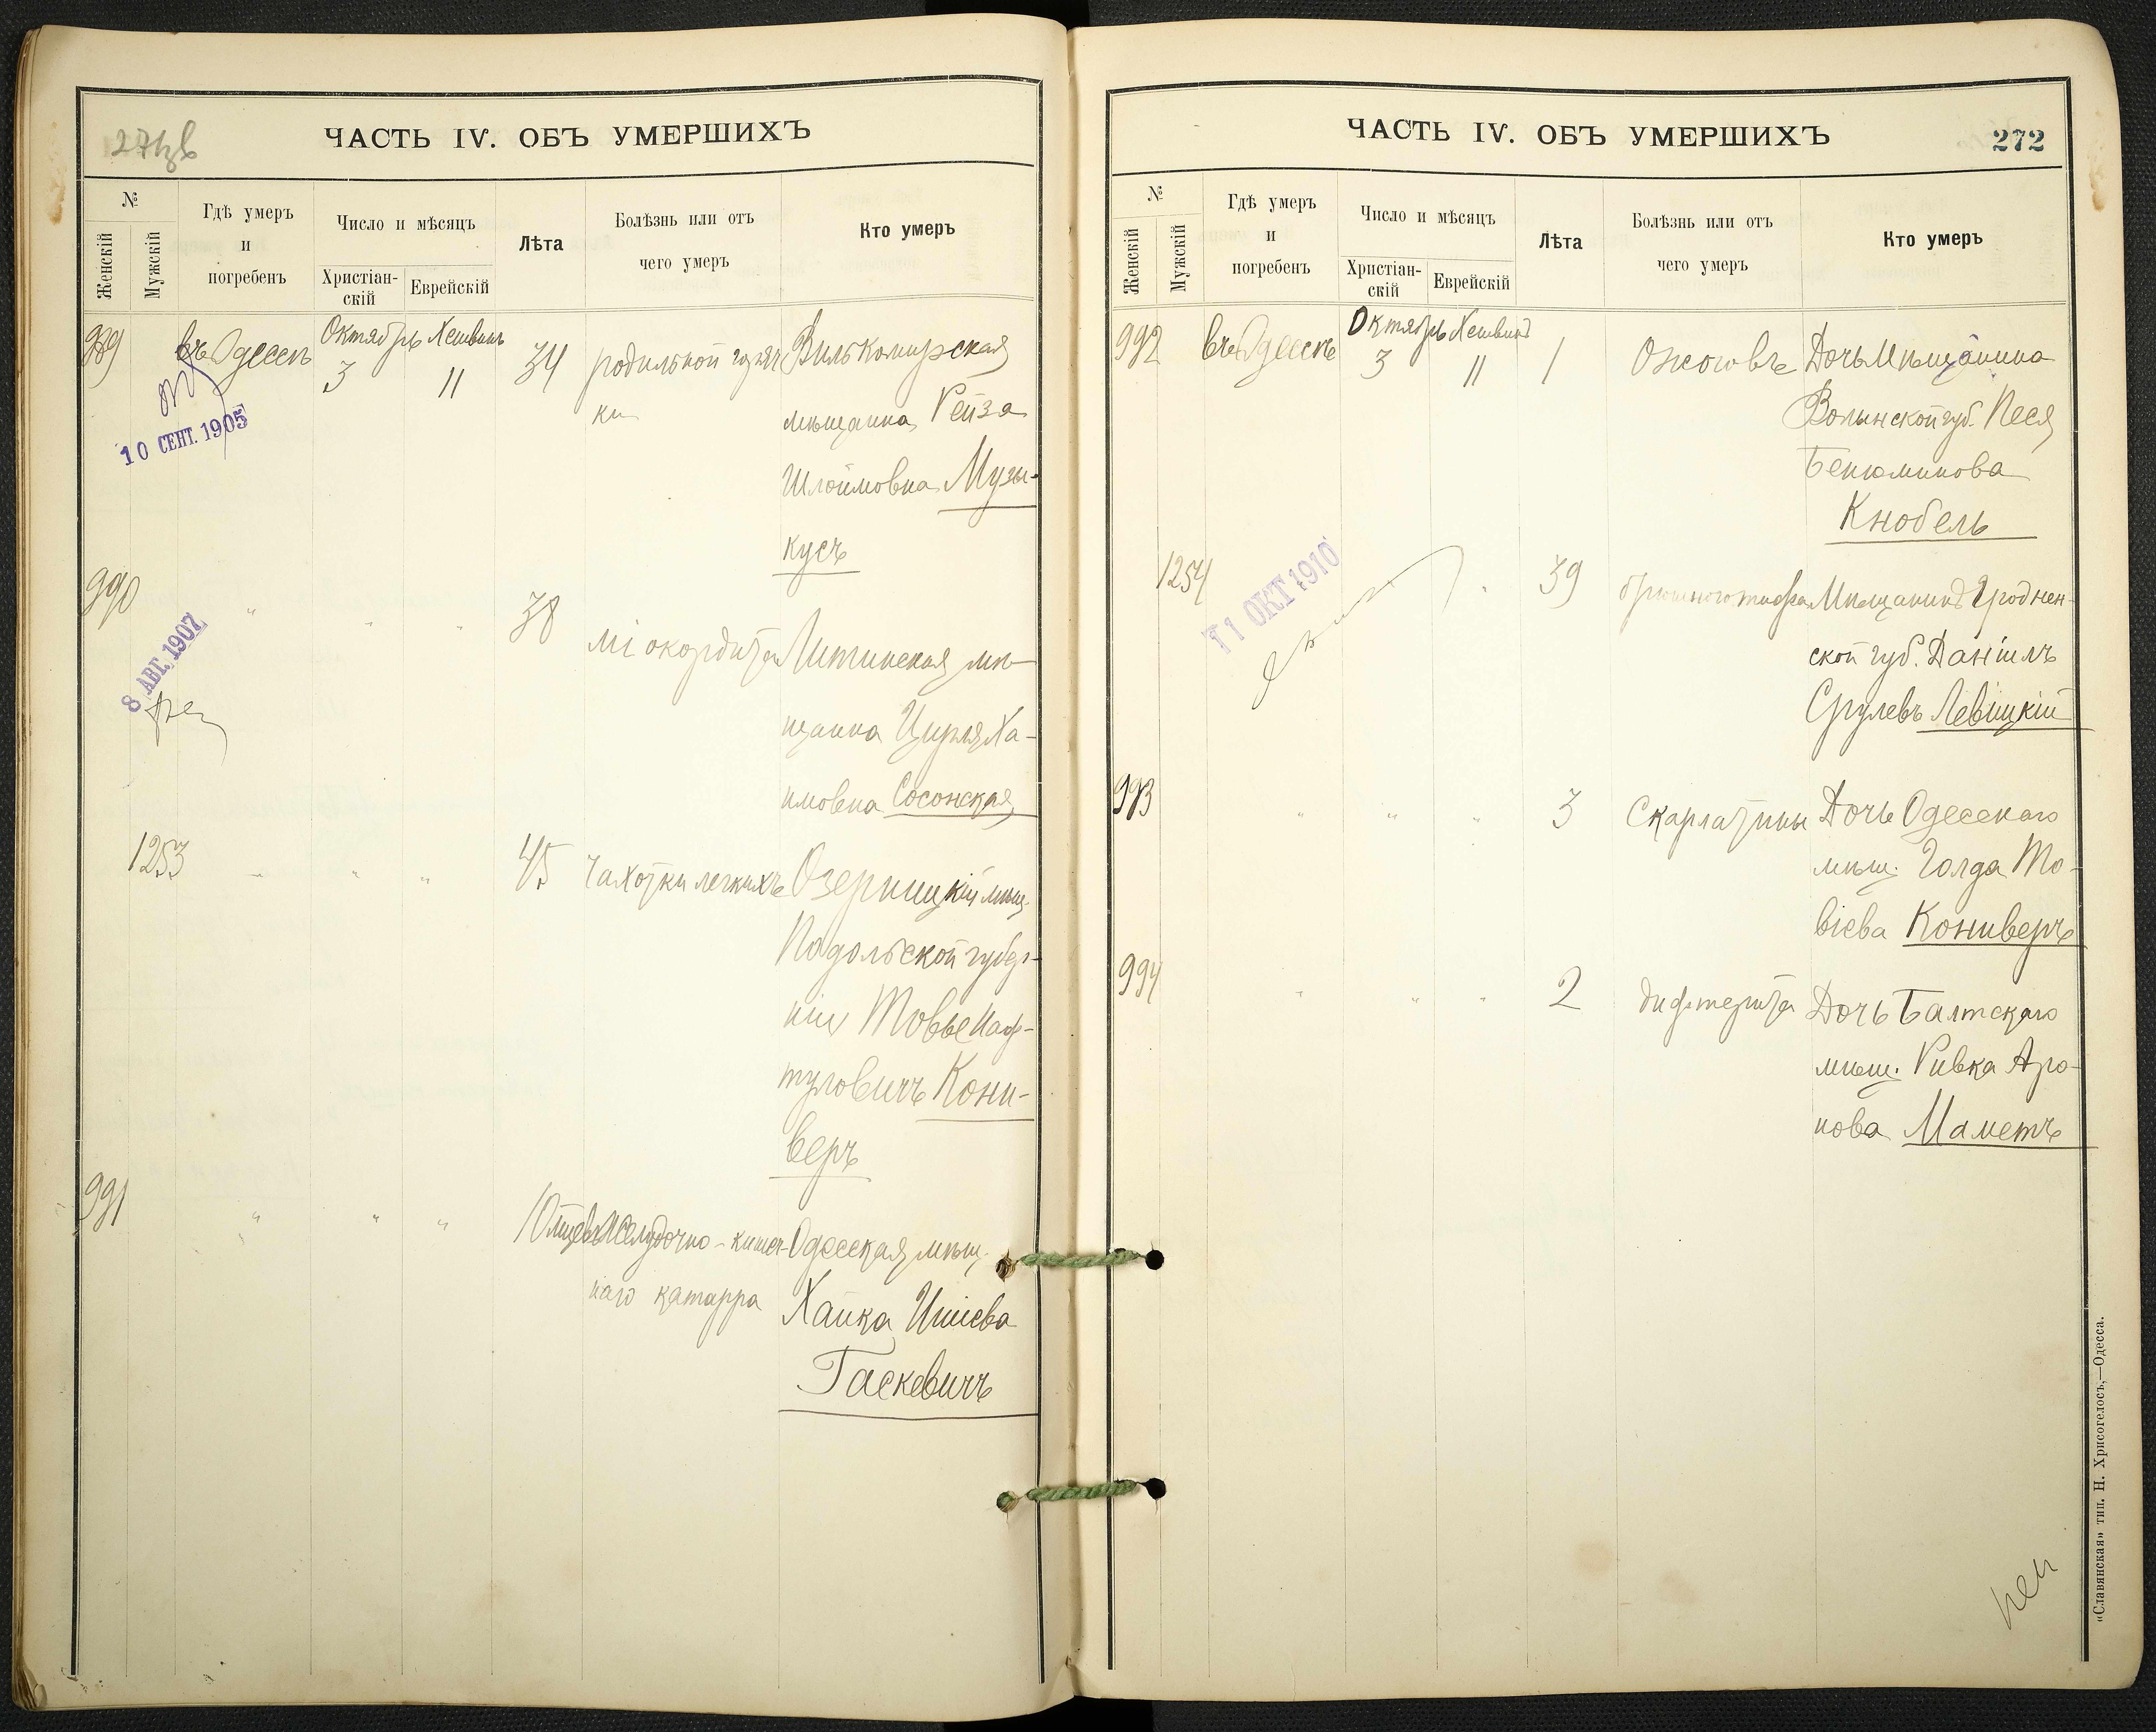 ЧАСТЬ IV. ОБЪ УМЕРШИХЪ
№
Женскій
Мужскій
Гдѣ умеръ
и
погребенъ
Число и мѣсяцъ
Христіан-
скій
Еврейскій
Лѣта
Болѣзнь или отъ
чего умеръ
Кто умеръ
989
въ Одессѣ
Октябрь Хешванъ
3
11
34
родильной горяч
ки
Вилькомирская
мѣщанка Рейза
Шлоймовна Музы-
кусъ
10 СЕНТ. 1905
990
"
"
"
38
міокардита
Литинская мѣ-
щанка Цирля Ха-
имовна Сосонская
8 АВГ. 1907
1253
"
"
"
45
Чахотки легкихъ
Озерницкій мѣщ.
Подольской губер-
ніи Товье Наф-
туловичъ Кони-
веръ
991
"
"
"
10 мцевъ
Желудочно-кишеч-
наго катарра
Одесская мѣщ.
Хайка Ишіева
Гаскевичъ
ЧАСТЬ IV. ОБЪ УМЕРШИХЪ
272
№
Женскій
Мужскій
Гдѣ умеръ
и
погребенъ
Число и мѣсяцъ
Христіан-
скій
Еврейскій
Лѣта
Болѣзнь или отъ
чего умеръ
Кто умеръ
992
въ Одессѣ
Октябрь Хешванъ
3
11
1
Ожоговъ
Дочь Мѣщанина
Волынской губ. Песя
Бенюминова
Кнобель
1254
39
брюшного тифа
Мѣщанинъ Гроднен-
ской губ. Даніилъ
Срулевъ Левицкій
11 ОКТ 1910
993
"
"
"
3
Скарлатины
Дочь Одесскаго
мѣщ. Голда То-
віева Кониверъ
994
"
"
"
2
дифтерита
Дочь Балтскаго
мѣщ. Ривка Аро-
нова Маметъ
«Славянская» тип. Н. Хрисогелосъ,—Одесса.